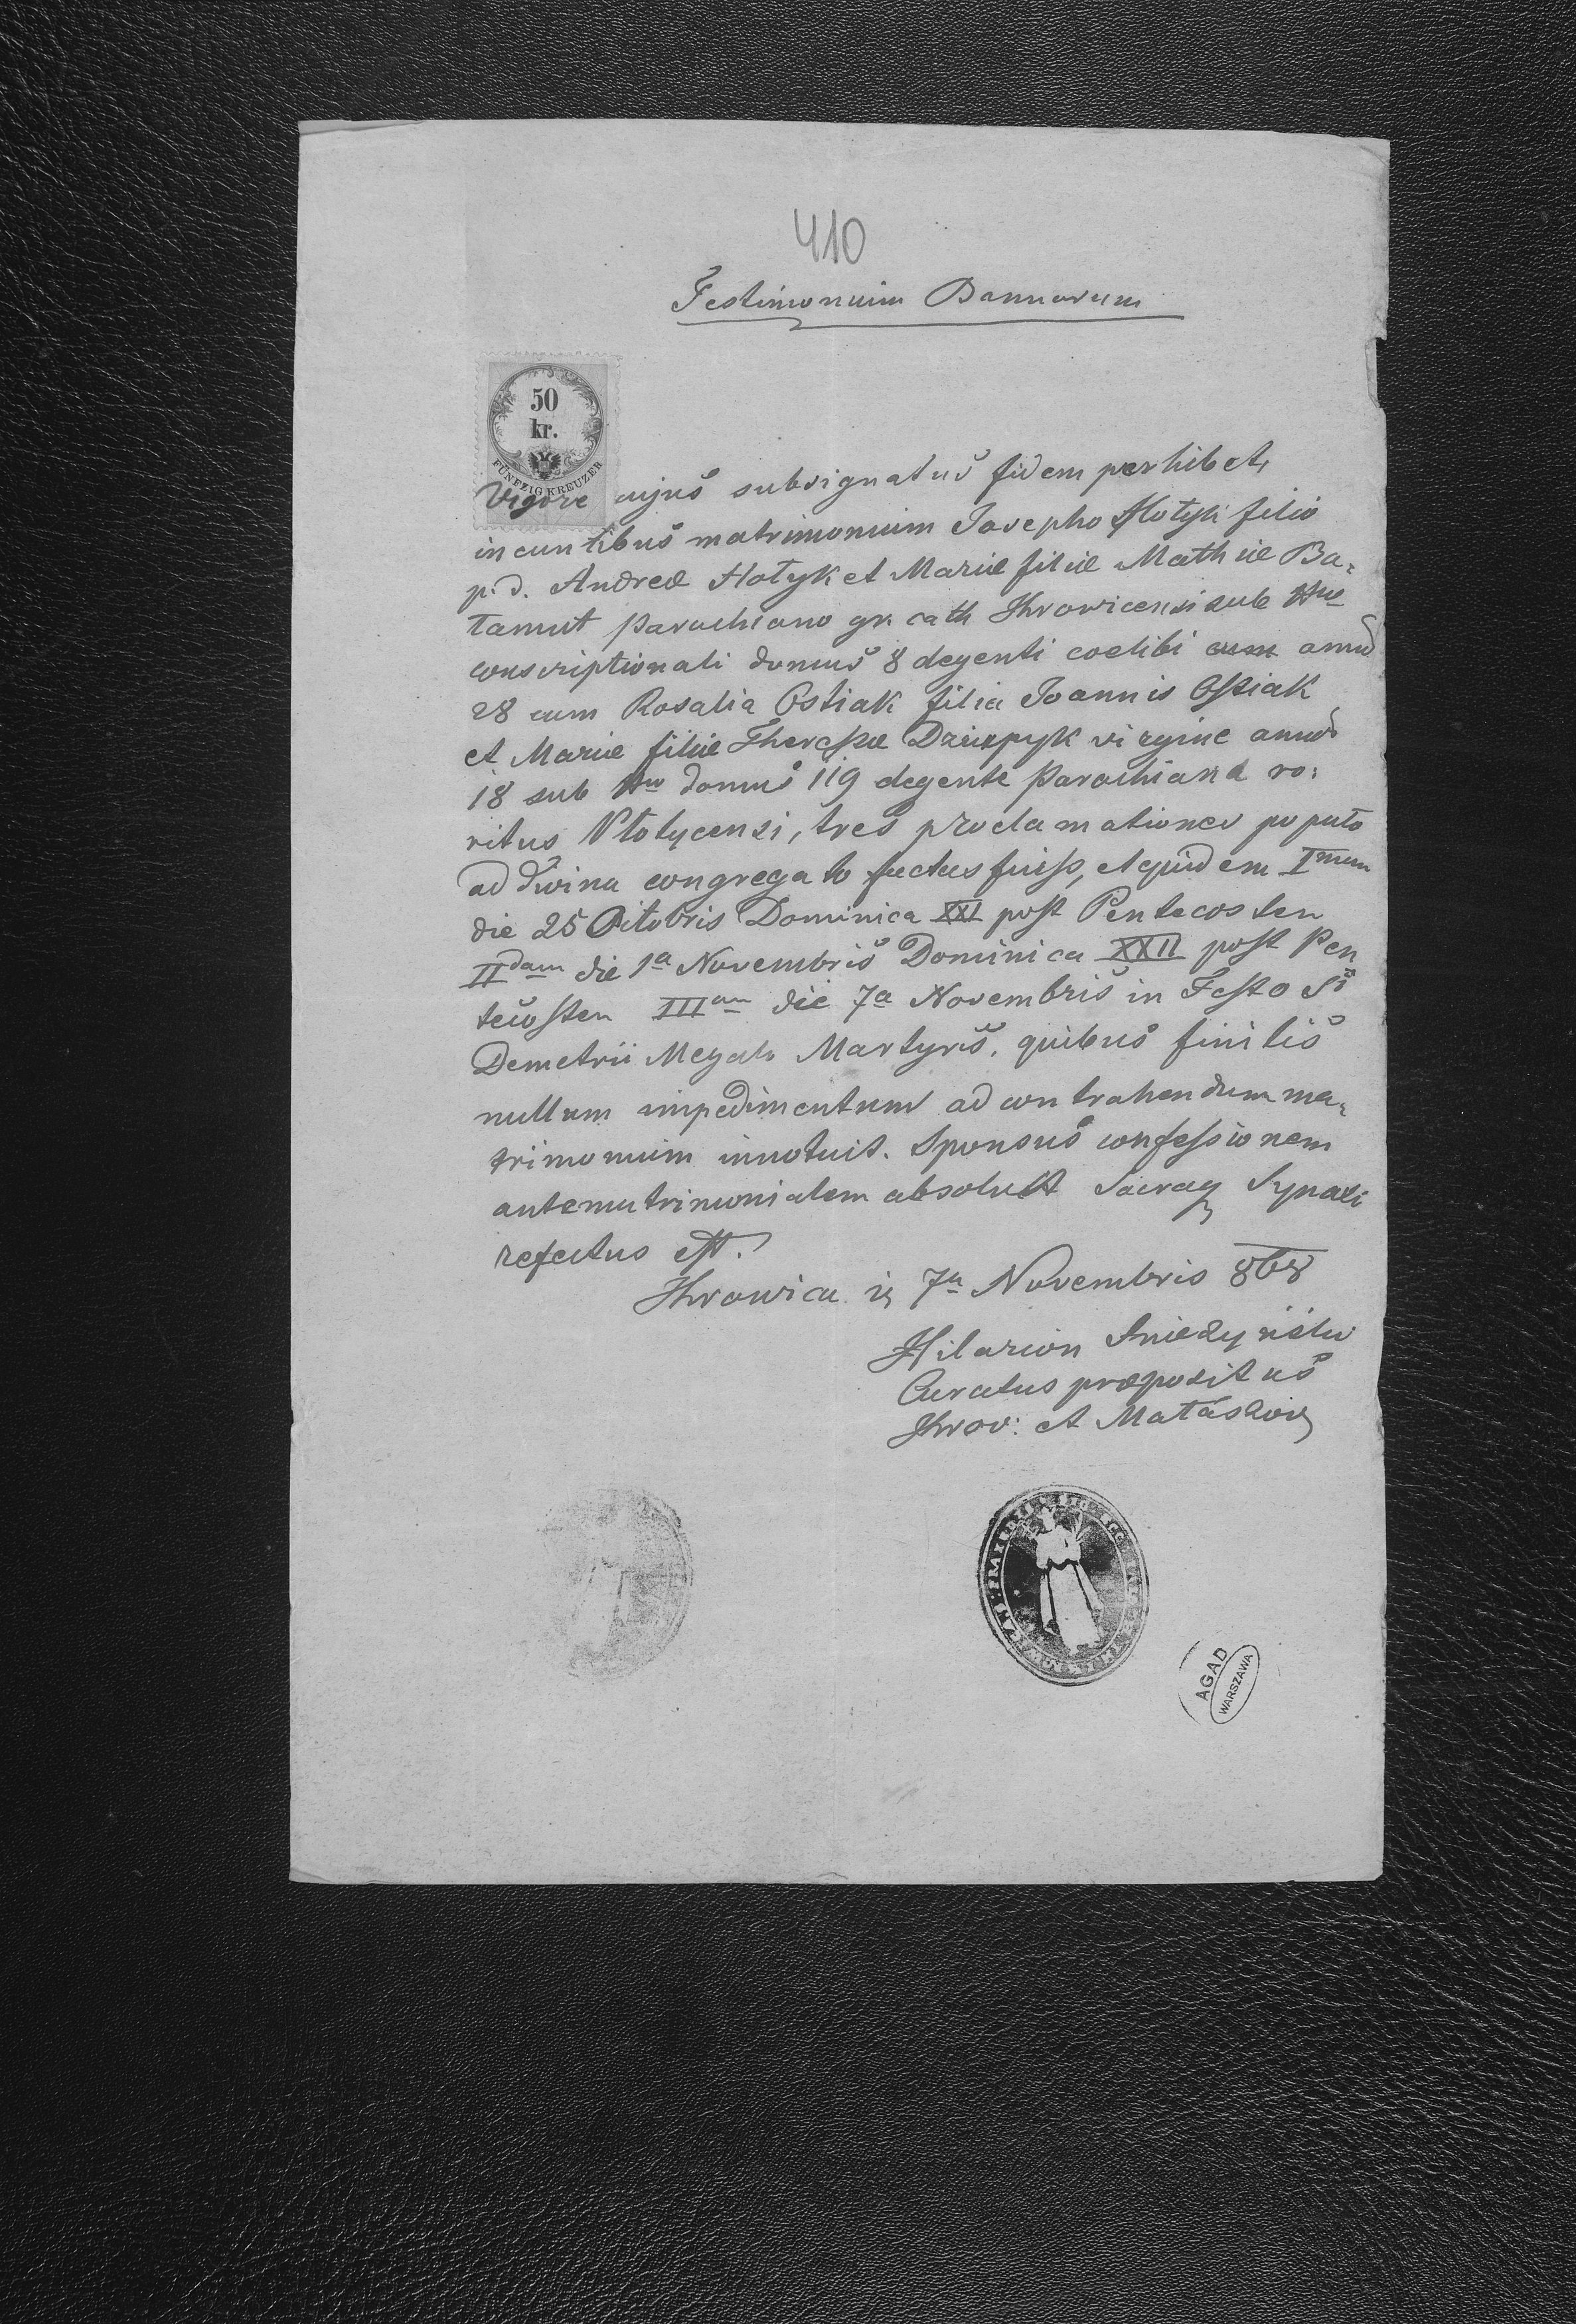 410
Testimonium Bannorum
50
kr.
FÜNFZIG KREUZER
Vigore cujus subsignatus fidem perhibet,
ineuntibus matrimonium Josepho Hotyk filio
p. d. Andreæ Hotyk et Mariæ filiæ Mathiæ Ba=
tamut parochiano gr. cath Ihrowicensi sub Nro
conscriptionali domus 8 degenti coelibi cum annor
28 cum Rosalia Ostiak filia Joannis Ostiak
et Mariæ filiæ Theressæ virgine annor
18 sub Nro domus 119 degente parochiana ro:
ritus Płotycensi, tres proclamationes populo
ad divina congregato factas fuisse, et quidem Imam
die 25 Octobris Dominica XXI post Pentecosten
IIdam die 1a Novembris Dominica XXII post Pen
tecosten IIIam die 7a Novembris in Festo Si
Demetrii Megalo Martyris, quibus finitis
nullum impedimentum ad contrahendum ma=
trimonium innotuit. Sponsus confessionem
antematrimonialem absolvit Sacraq Synaxi
refectus est.
Ihrowica 7a Novembris 868
Hilarion
Curatus præpositus
Ihrov: et
AGAD
WARSZAWA